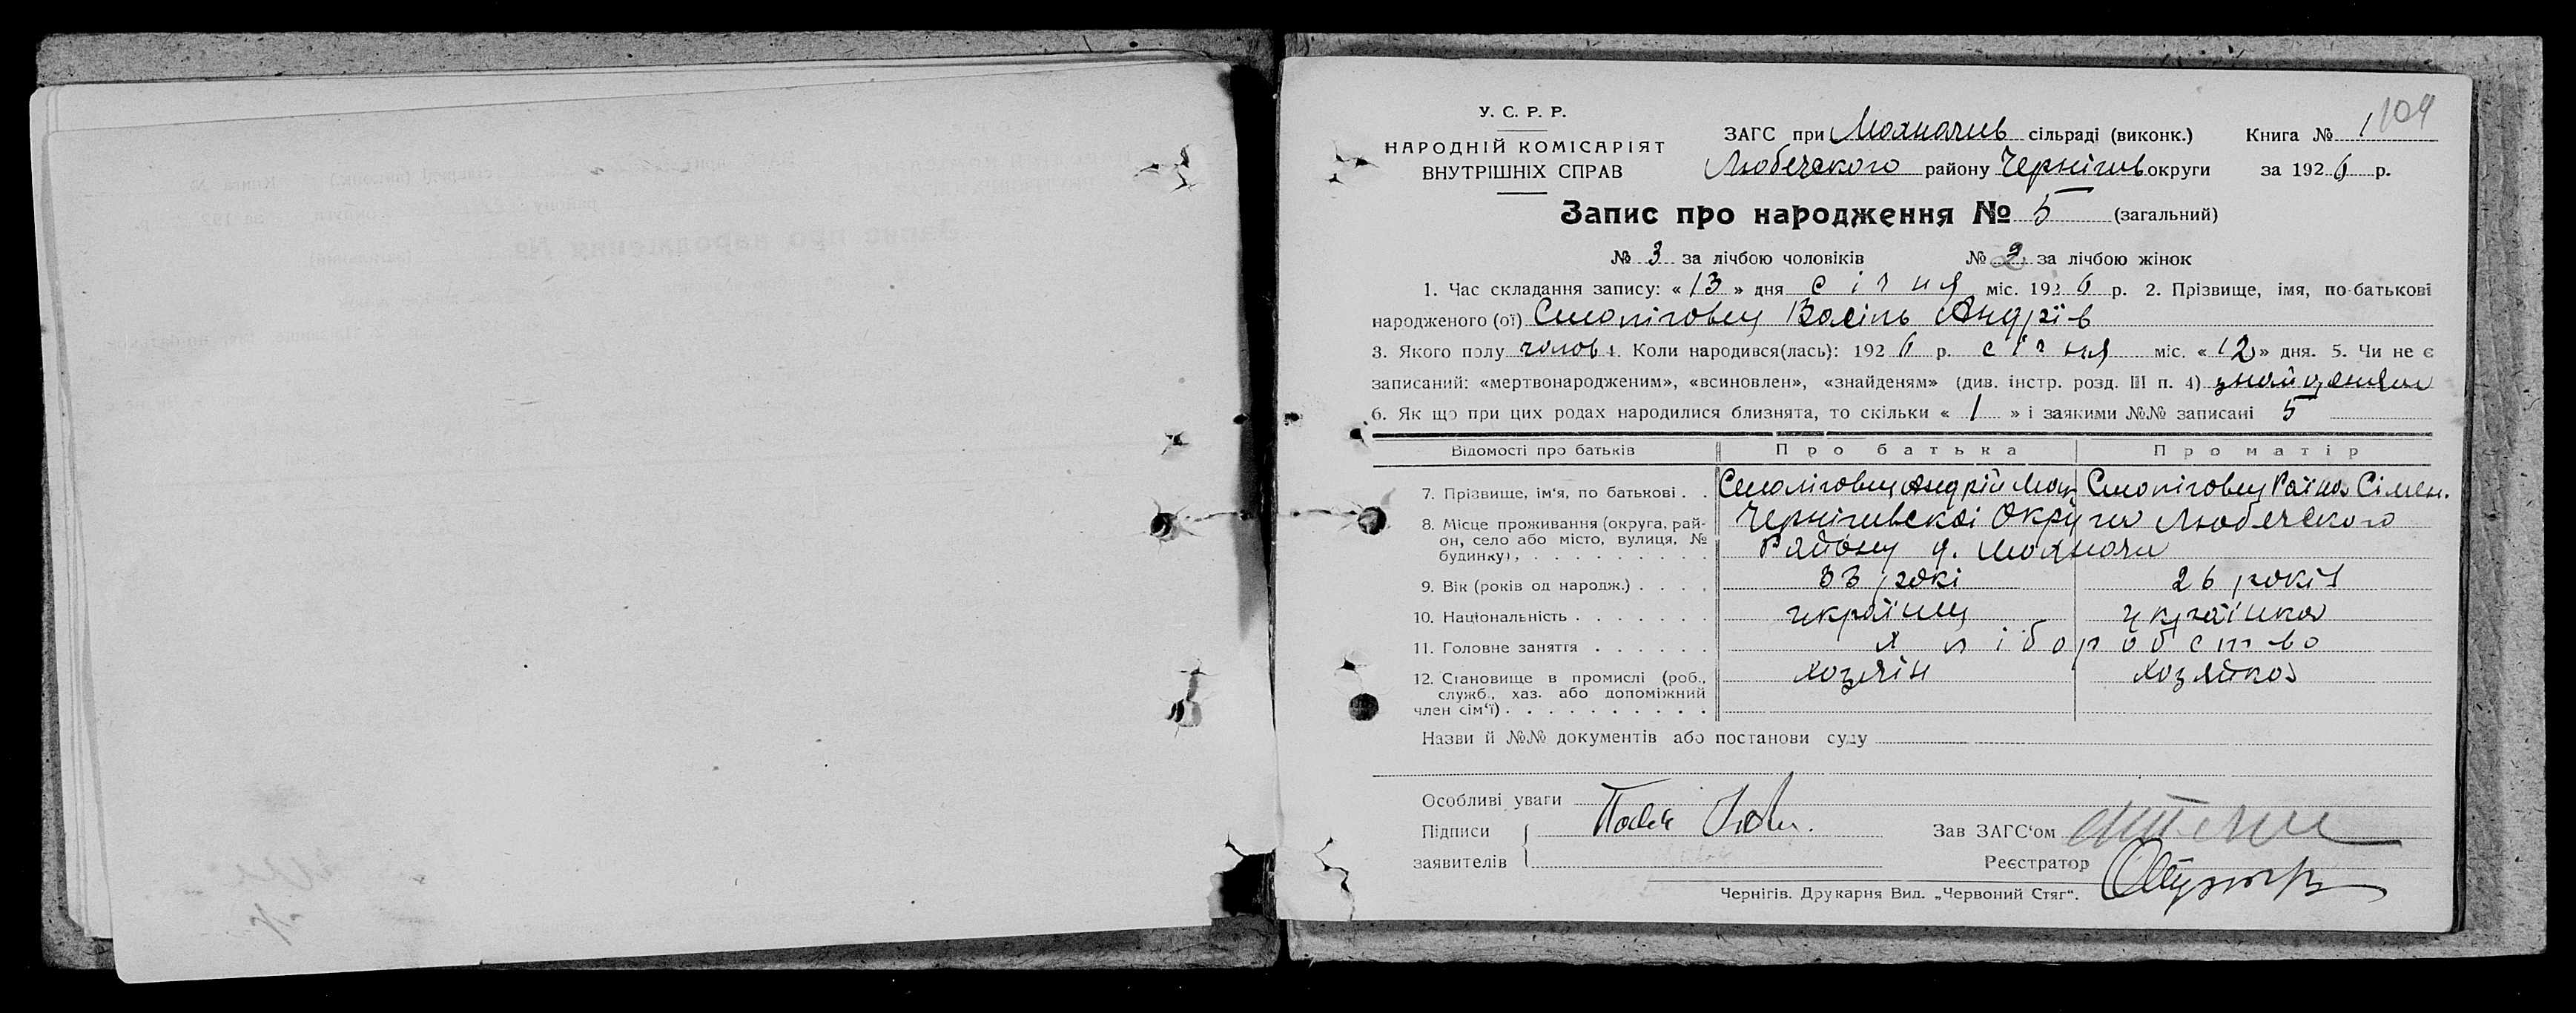 104
У. С. Р. Р.
НАРОДНІЙ КОМІСАРІЯТ
ВНУТРІШНІХ СПРАВ
ЗАГС при Мохначив сільраді (виконк.) Книга № 1
Любечского району Чернігив округи за 1926 р.
Запис про народження № 5 (загальний)
№ 3 за лічбою чоловіків № 2 за лічбою жінок
1. Час складання запису: « 13 » дня січня міс. 1926 р. 2. Прізвище, імя, по-батькові
народженого (ої) Смоліговец Васіль Андрїв
3. Якого полу чолов 4. Коли народився(лась): 1926 р. січня міс. « 12 » дня. 5. Чи не є
записаний: «мертвонародженим», «всиновлен», «знайденям» (див. інстр. розд. III п. 4) знайденям
6. Як що при цих родах народилися близнята, то скільки « 1 » і заякими №№ записані 5
Відомості про батьків Про батька Про матір
7. Прізвище, ім'я, по батькові . . Смоліговец Андрій Смоліговец Сімен.
8. Місце проживання (округа, рай- Чернігивскої Округи Любечского
он, село або місто, вулиця, № Району д. Мохначи
будинку) . . . . . . . . .
9. Вік (років од народж.) . . . . 33 рокі 26 років
10. Національність . . . . . . . украінец украінка
11. Головне заняття . . . . . . хліборобство
12. Становище в промислі (роб., хозяін хозяйка
служб., хаз. або допоміжний
член сім'ї) . . . . . . . . . .
Назви й №№ документів або постанови суду
Особливі уваги
Підписи
заявителів
Зав ЗАГС'ом
Реєстратор
Чернігів. Друкарня Вид. „Червоний Стяг".